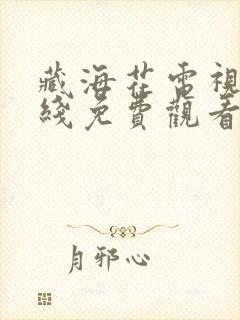 藏海花電視
綫免費觀看
月邪心